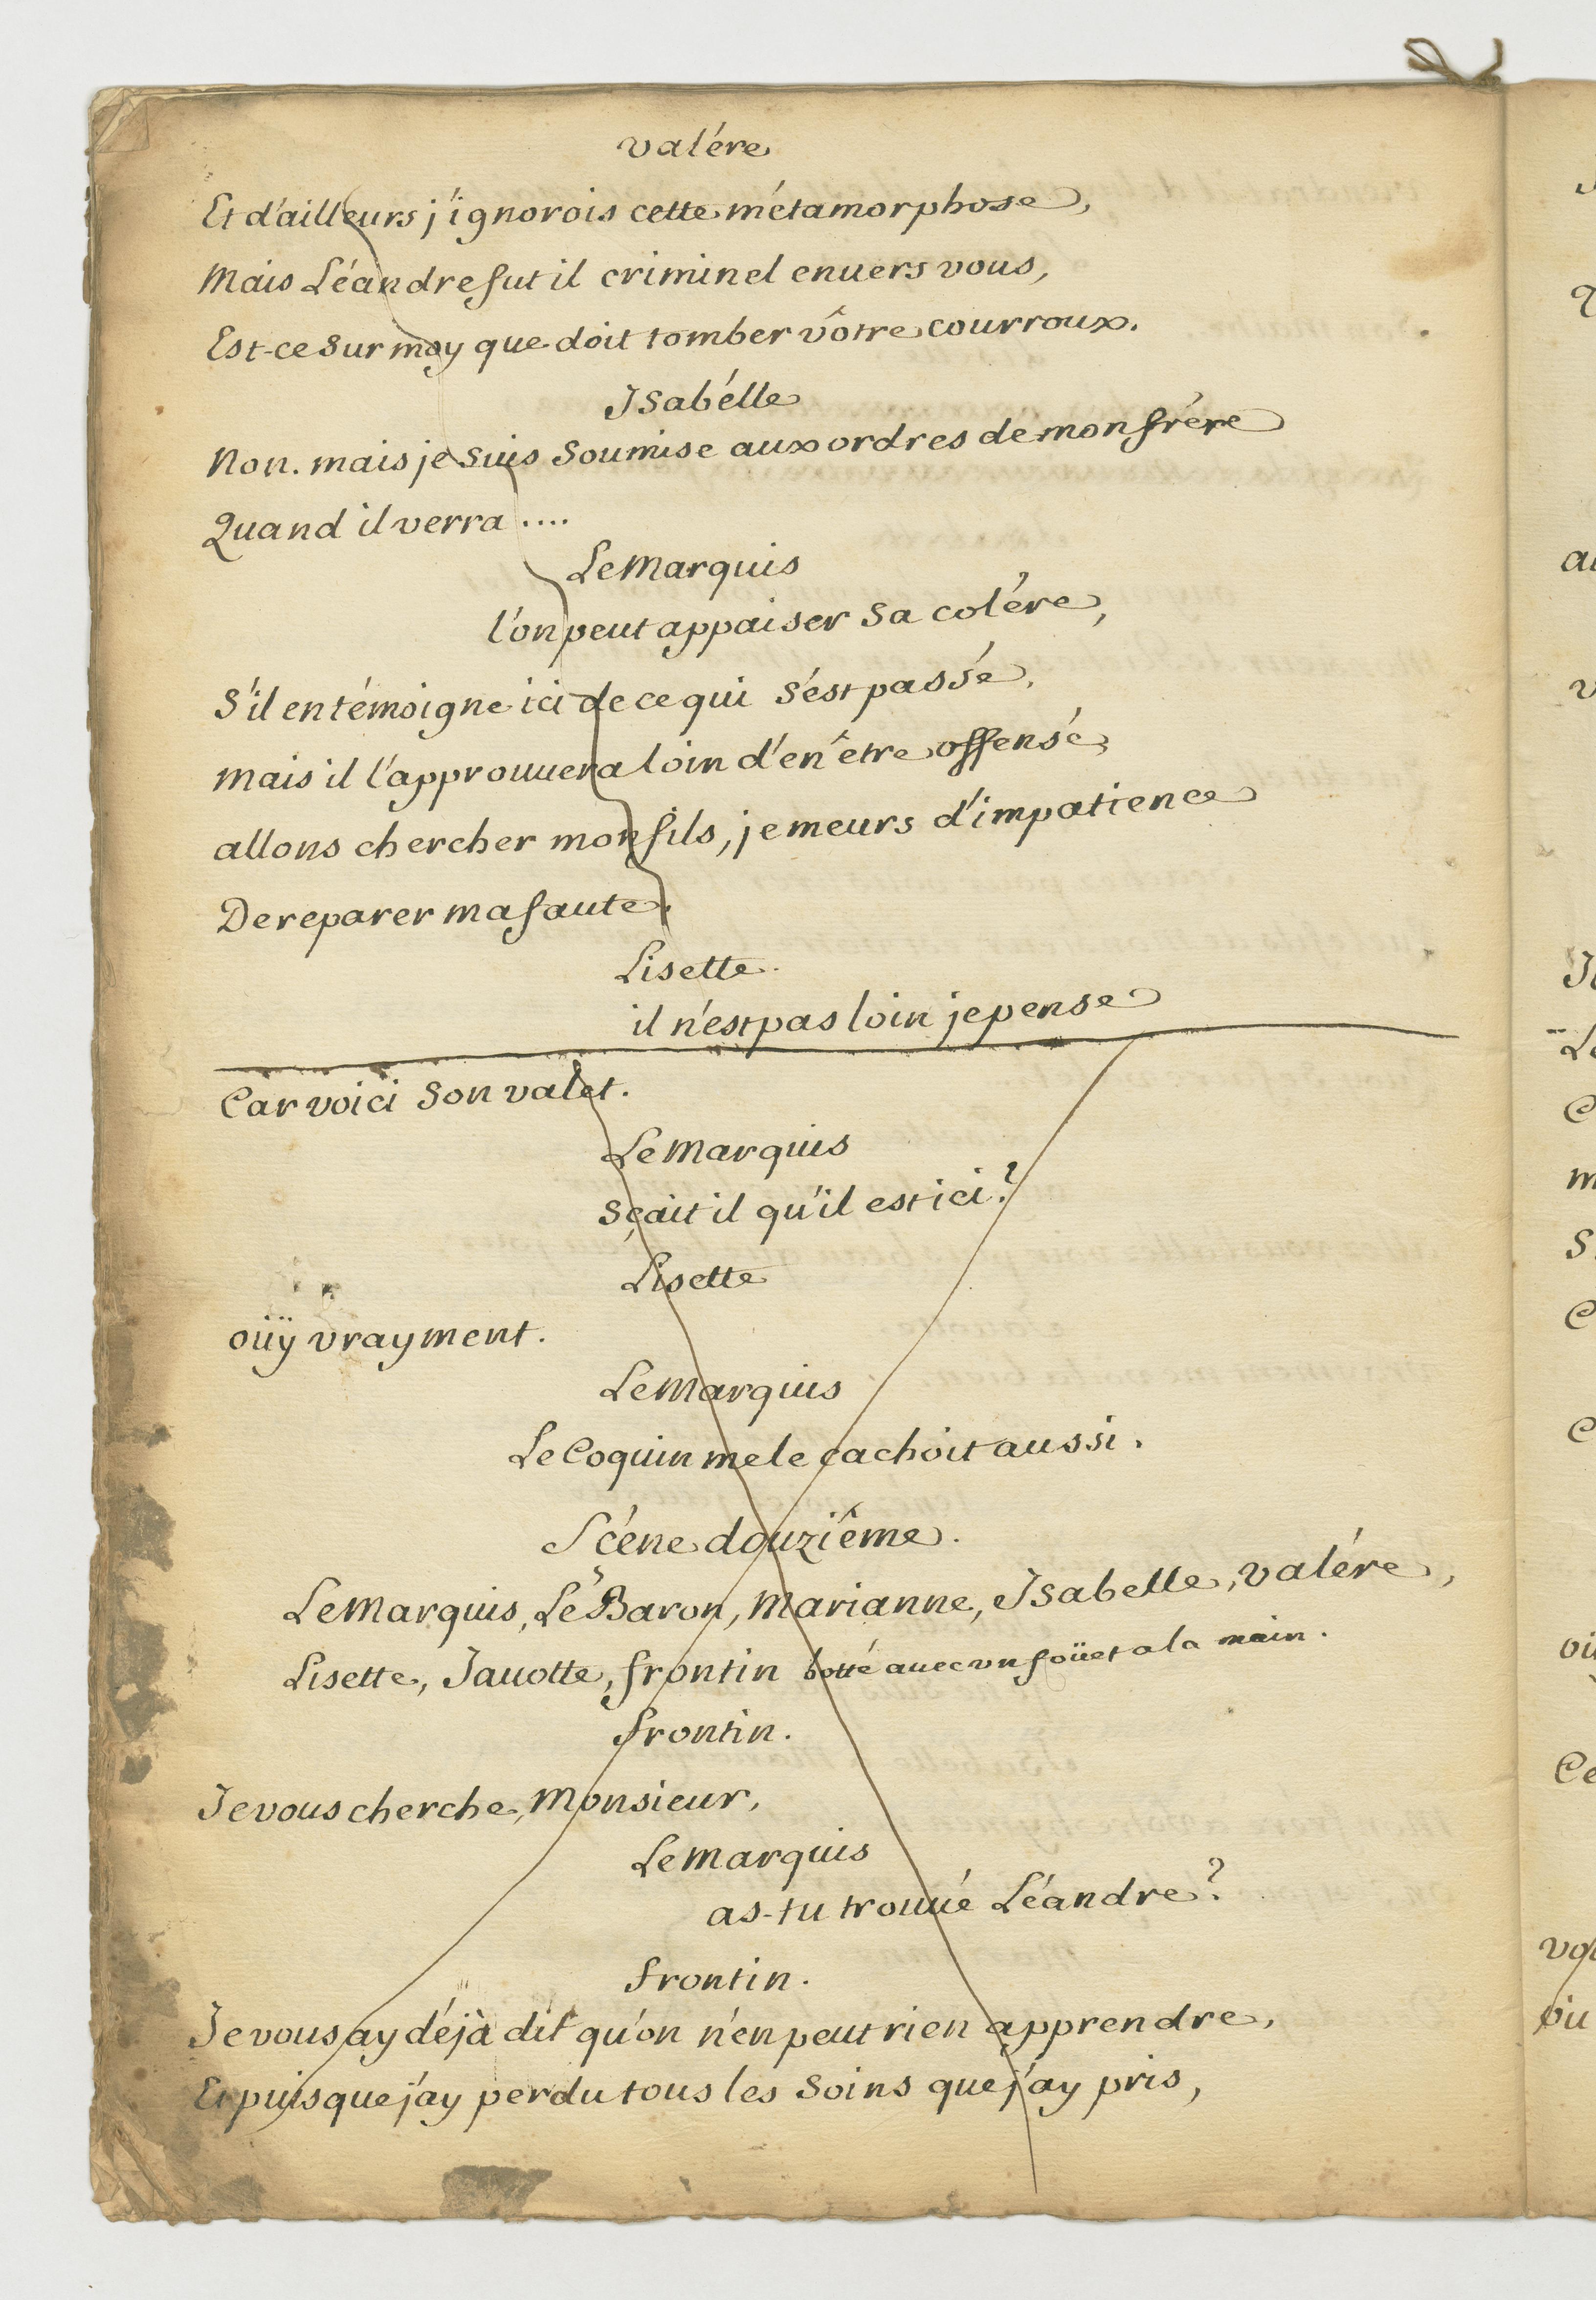 valére
Et d'ailleurs j'ignorois cette métamorphose,
Mais Léandre fut il criminel enuers vous,
Est-ce sur moy que doit tomber vôtre courroux.
Isabélle
Non. mais je suis soumise aux ordres de mon frére
Quand il verra ....
Le Marquis
l'on peut appaiser sa colére,
S'il en témoigne ici de ce qui s'est passé,
Mais il l'approuuera loin d'en être offensé,
allons chercher mon fils, je meurs d'impatience
De reparer ma faute.
Lisette.
il n'est pas loin je pense
Car voici son valet.
Le Marquis
sçait il qu'il est ici?
Lisette
oüÿ vrayment.
Le Marquis
Le Coquin me le cachoit aussi.
Scéne douziême.
Le Marquis, Le Baron, Marianne, Isabelle, valére,
Lisette, Jauotte, frontin botté auec vn foüet a la main.
frontin.
Je vous cherche, Monsieur,
Le Marquis
as-tu trouué Léandre?
frontin.
Je vous ay déjà dit qu'on n'en peut rien apprendre,
Et puisque j'ay perdu tous les soins que j'ay pris,